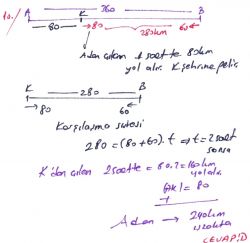 10.) A 360 B
K
80 →80 280km 60←
A'dan çıkan 1 saatte 80km
yol alır. K şehrine gelir.
K 280 B
→80 60←
Karşılaşma süresi
280 = (80+60).t ⇒ t=2saat
sonra
K'dan çıkan 2 saatte = 80.2=160km
yol alır.
|AK| = 80
+
A'dan → 240km
uzakta
CEVAP: D